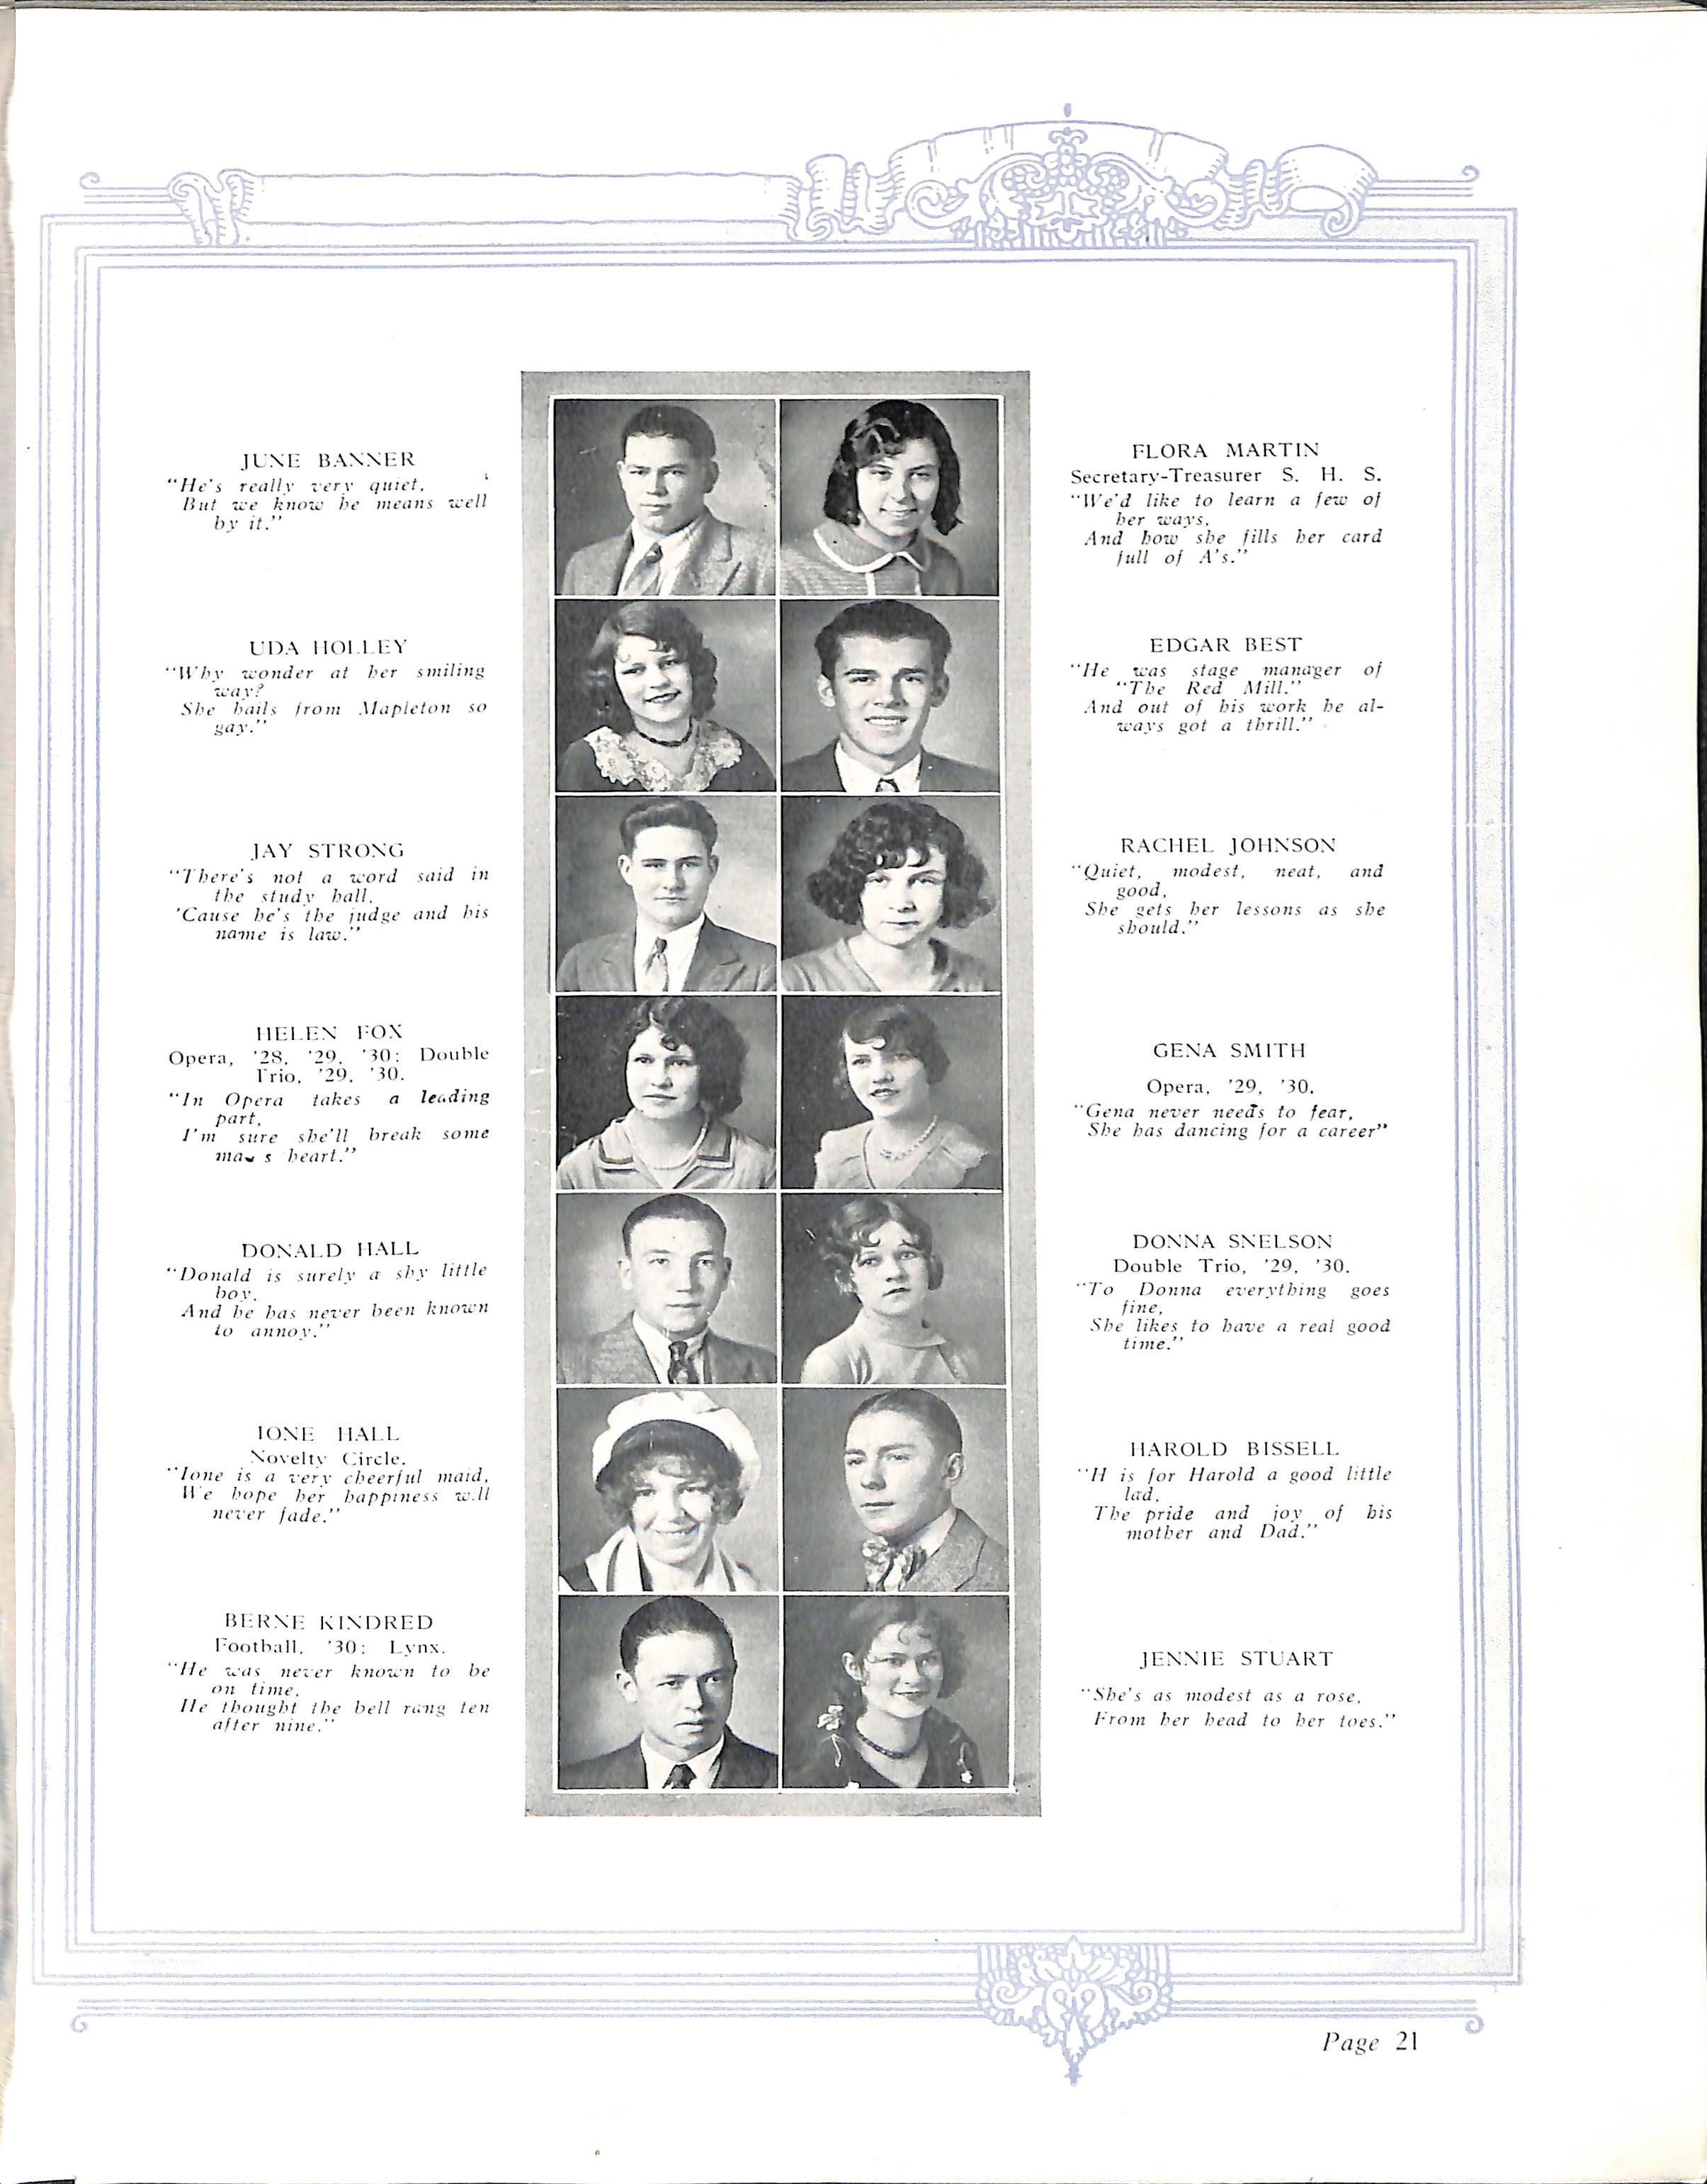 JUNE BANNER
"He's really very quiet,
But we know he means well
by it."
UDA HOLLEY
"Why wonder at her smiling
way?
She hails from Mapleton so
gay."
JAY STRONG
"There's not a word said in
the study hall,
'Cause he's the judge and his
name is law."
HELEN FOX
Opera, '28, '29, '30; Double
Trio, '29, '30.
"In Opera takes a leading
part,
I'm sure she'll break some
heart."
DONALD HALL
"Donald is surely a shy little
boy,
And he has never been known
to annoy."
IONE HALL
Novelty Circle.
"Ione is a very cheerful maid,
We hope her happiness will
never fade."
BERNE KINDRED
Football, '30; Lynx.
"He was never known to be
on time,
He thought the bell rang ten
after nine."
FLORA MARTIN
Secretary-Treasurer S. H. S.
"We'd like to learn a few of
her ways,
And how she fills her card
full of A's."
EDGAR BEST
"He was stage manager of
"The Red Mill."
And out of his work he al-
ways got a thrill."
RACHEL JOHNSON
"Quiet, modest, neat, and
good,
She gets her lessons as she
should."
GENA SMITH
Opera, '29, '30.
"Gena never needs to fear,
She has dancing for a career"
DONNA SNELSON
Double Trio, '29, '30.
"To Donna everything goes
fine,
She likes to have a real good
time."
HAROLD BISSELL
"H is for Harold a good little
lad,
The pride and joy of his
mother and Dad."
JENNIE STUART
"She's as modest as a rose,
From her head to her toes."
Page 21